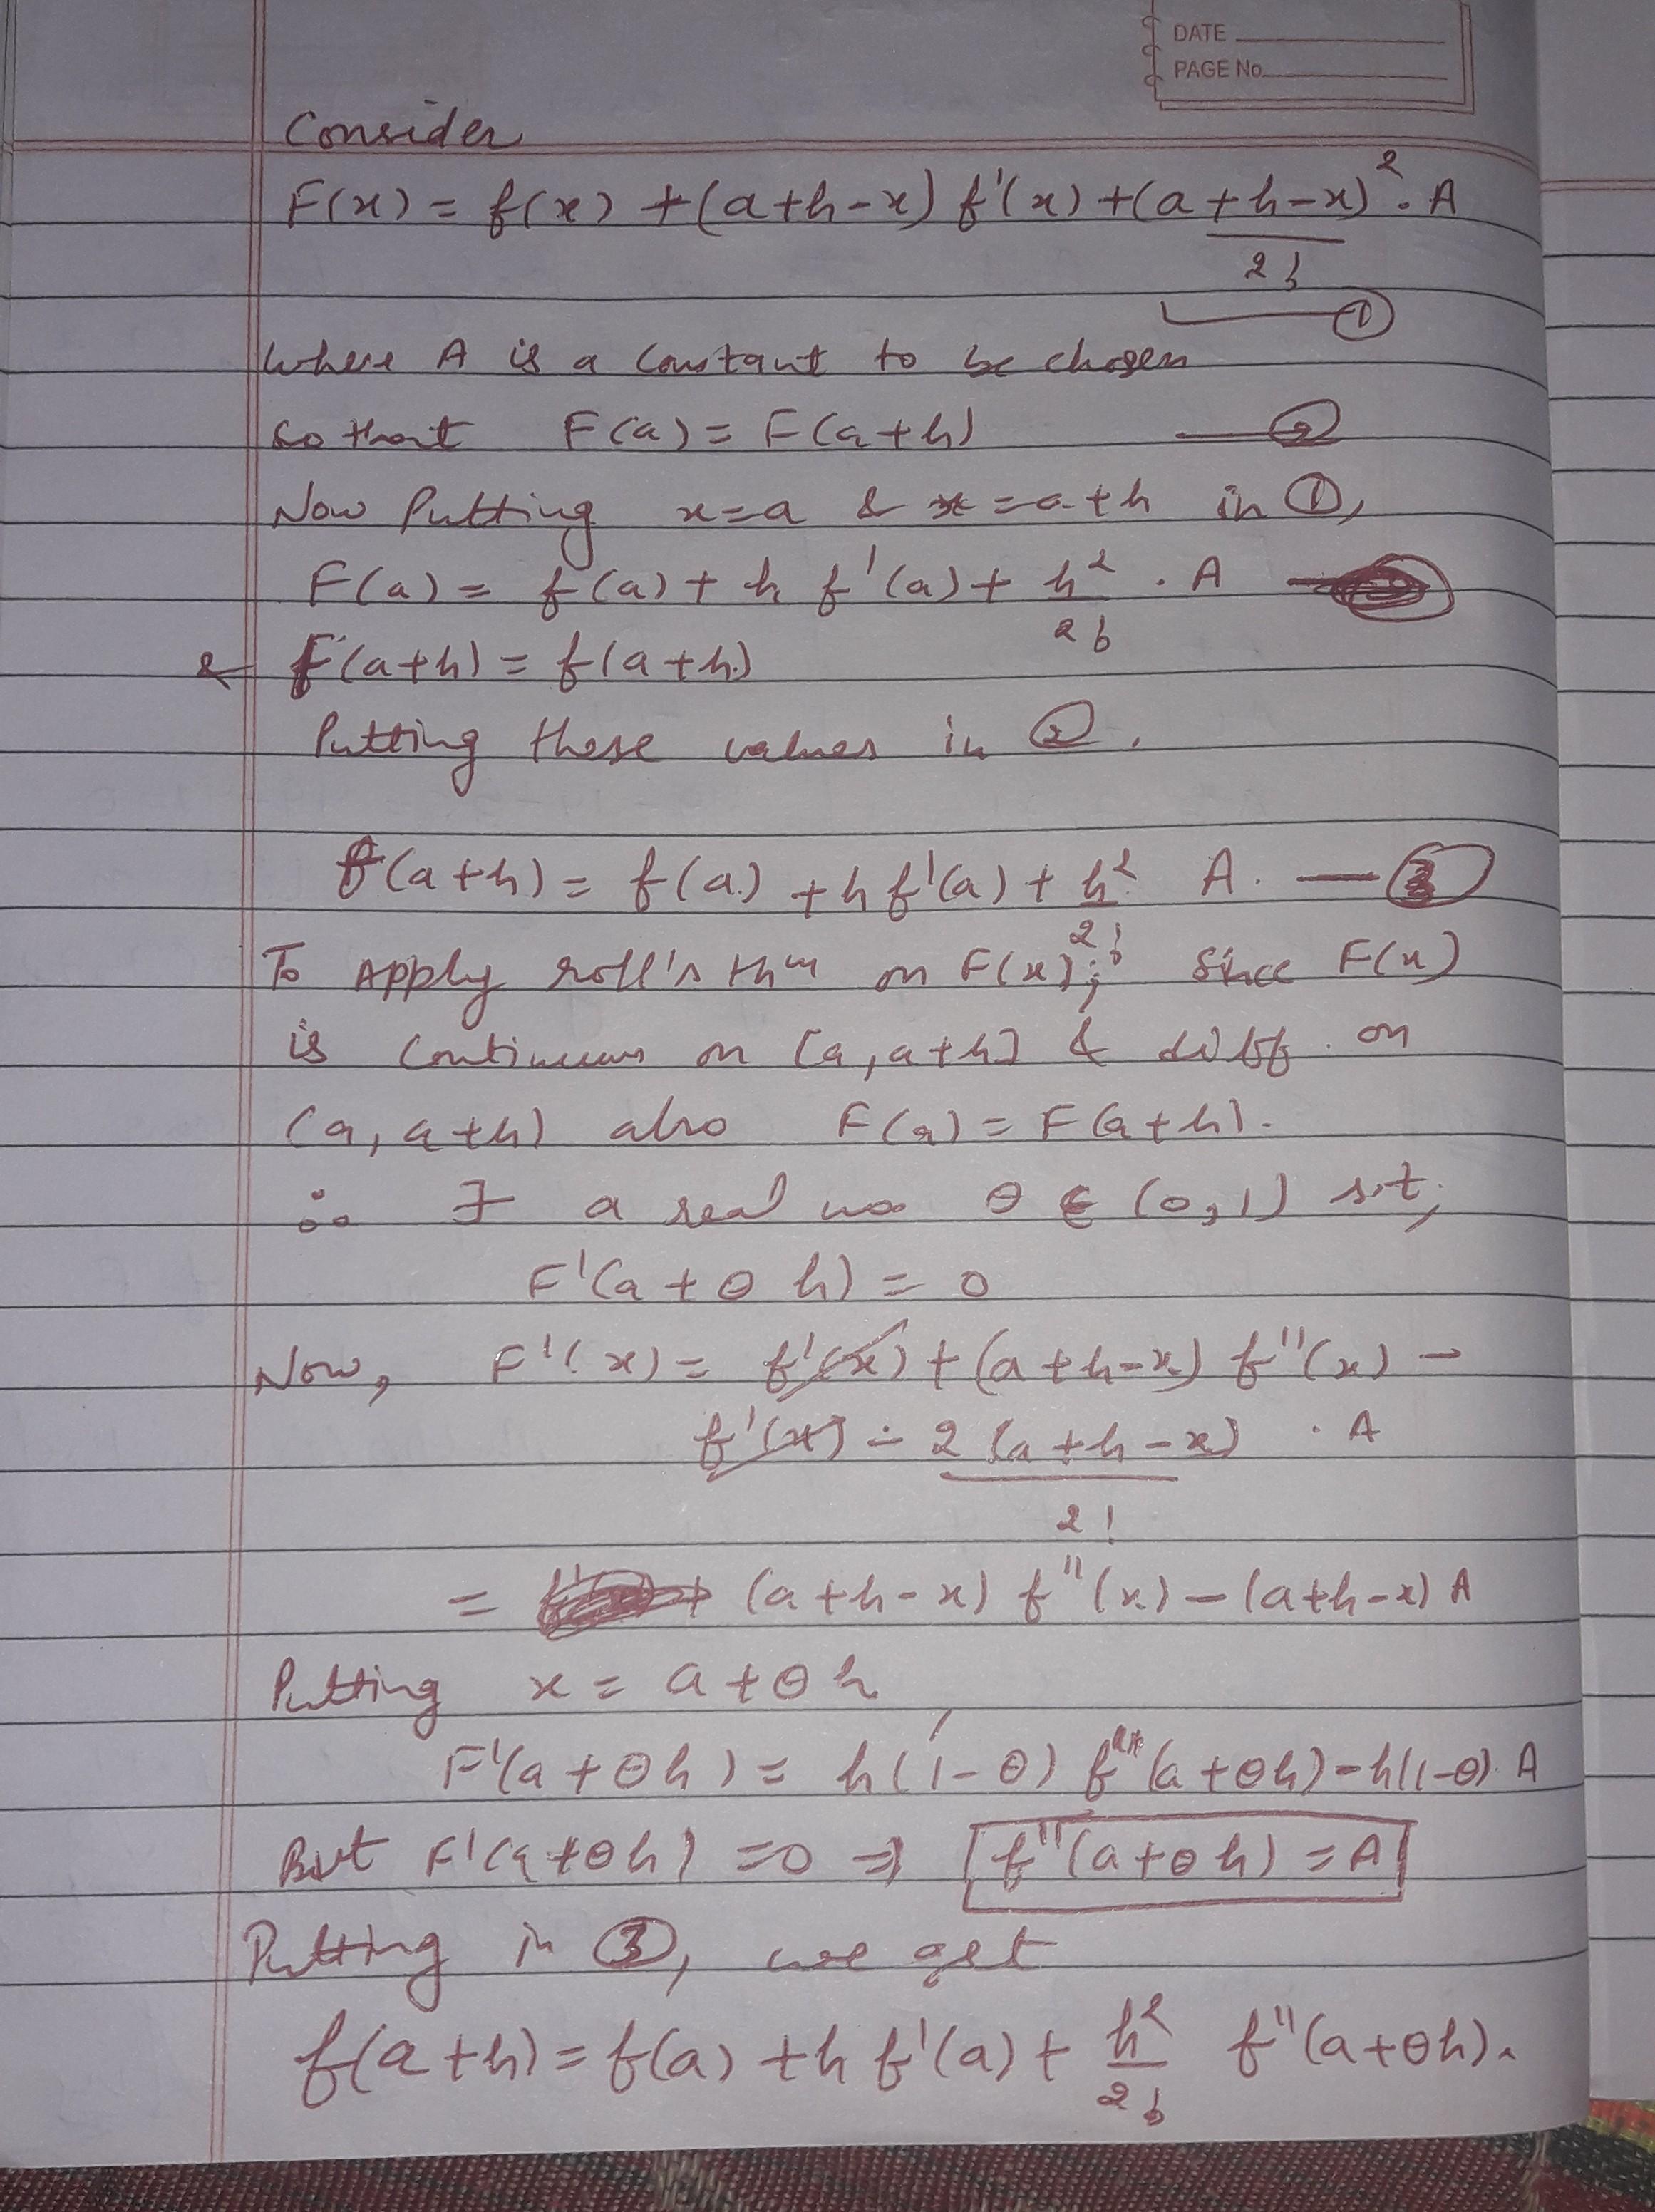 DATE
PAGE No.
Consider
F(x) = f(x) + (a+h-x) f'(x) + (a+h-x)² . A
2!
①
where A is a constant to be chosen
so that F(a) = F(a+h) — ②
Now Putting x=a & x=a+h in ①,
F(a) = f(a) + h f'(a) + h² . A
2!
& F(a+h) = f(a+h)
Putting these values in ②.
f(a+h) = f(a) + h f'(a) + h² A. — ③
2!
To Apply roll's thm on F(x); Since F(x)
is continuous on [a, a+h] & diff. on
(a, a+h) also F(a) = F(a+h).
∴ ∃ a real no θ ∈ (0,1) s.t;
F'(a+θh) = 0
Now, F'(x) = f'(x) + (a+h-x) f''(x) -
f'(x) - 2 (a+h-x) . A
2!
= (a+h-x) f''(x) - (a+h-x) A
Putting x = a+θh
F'(a+θh) = h(1-θ) f''(a+θh) - h(1-θ). A
But F'(a+θh) = 0 ⇒ f''(a+θh) = A
Putting in ③, we get
f(a+h) = f(a) + h f'(a) + h² f''(a+θh).
2!